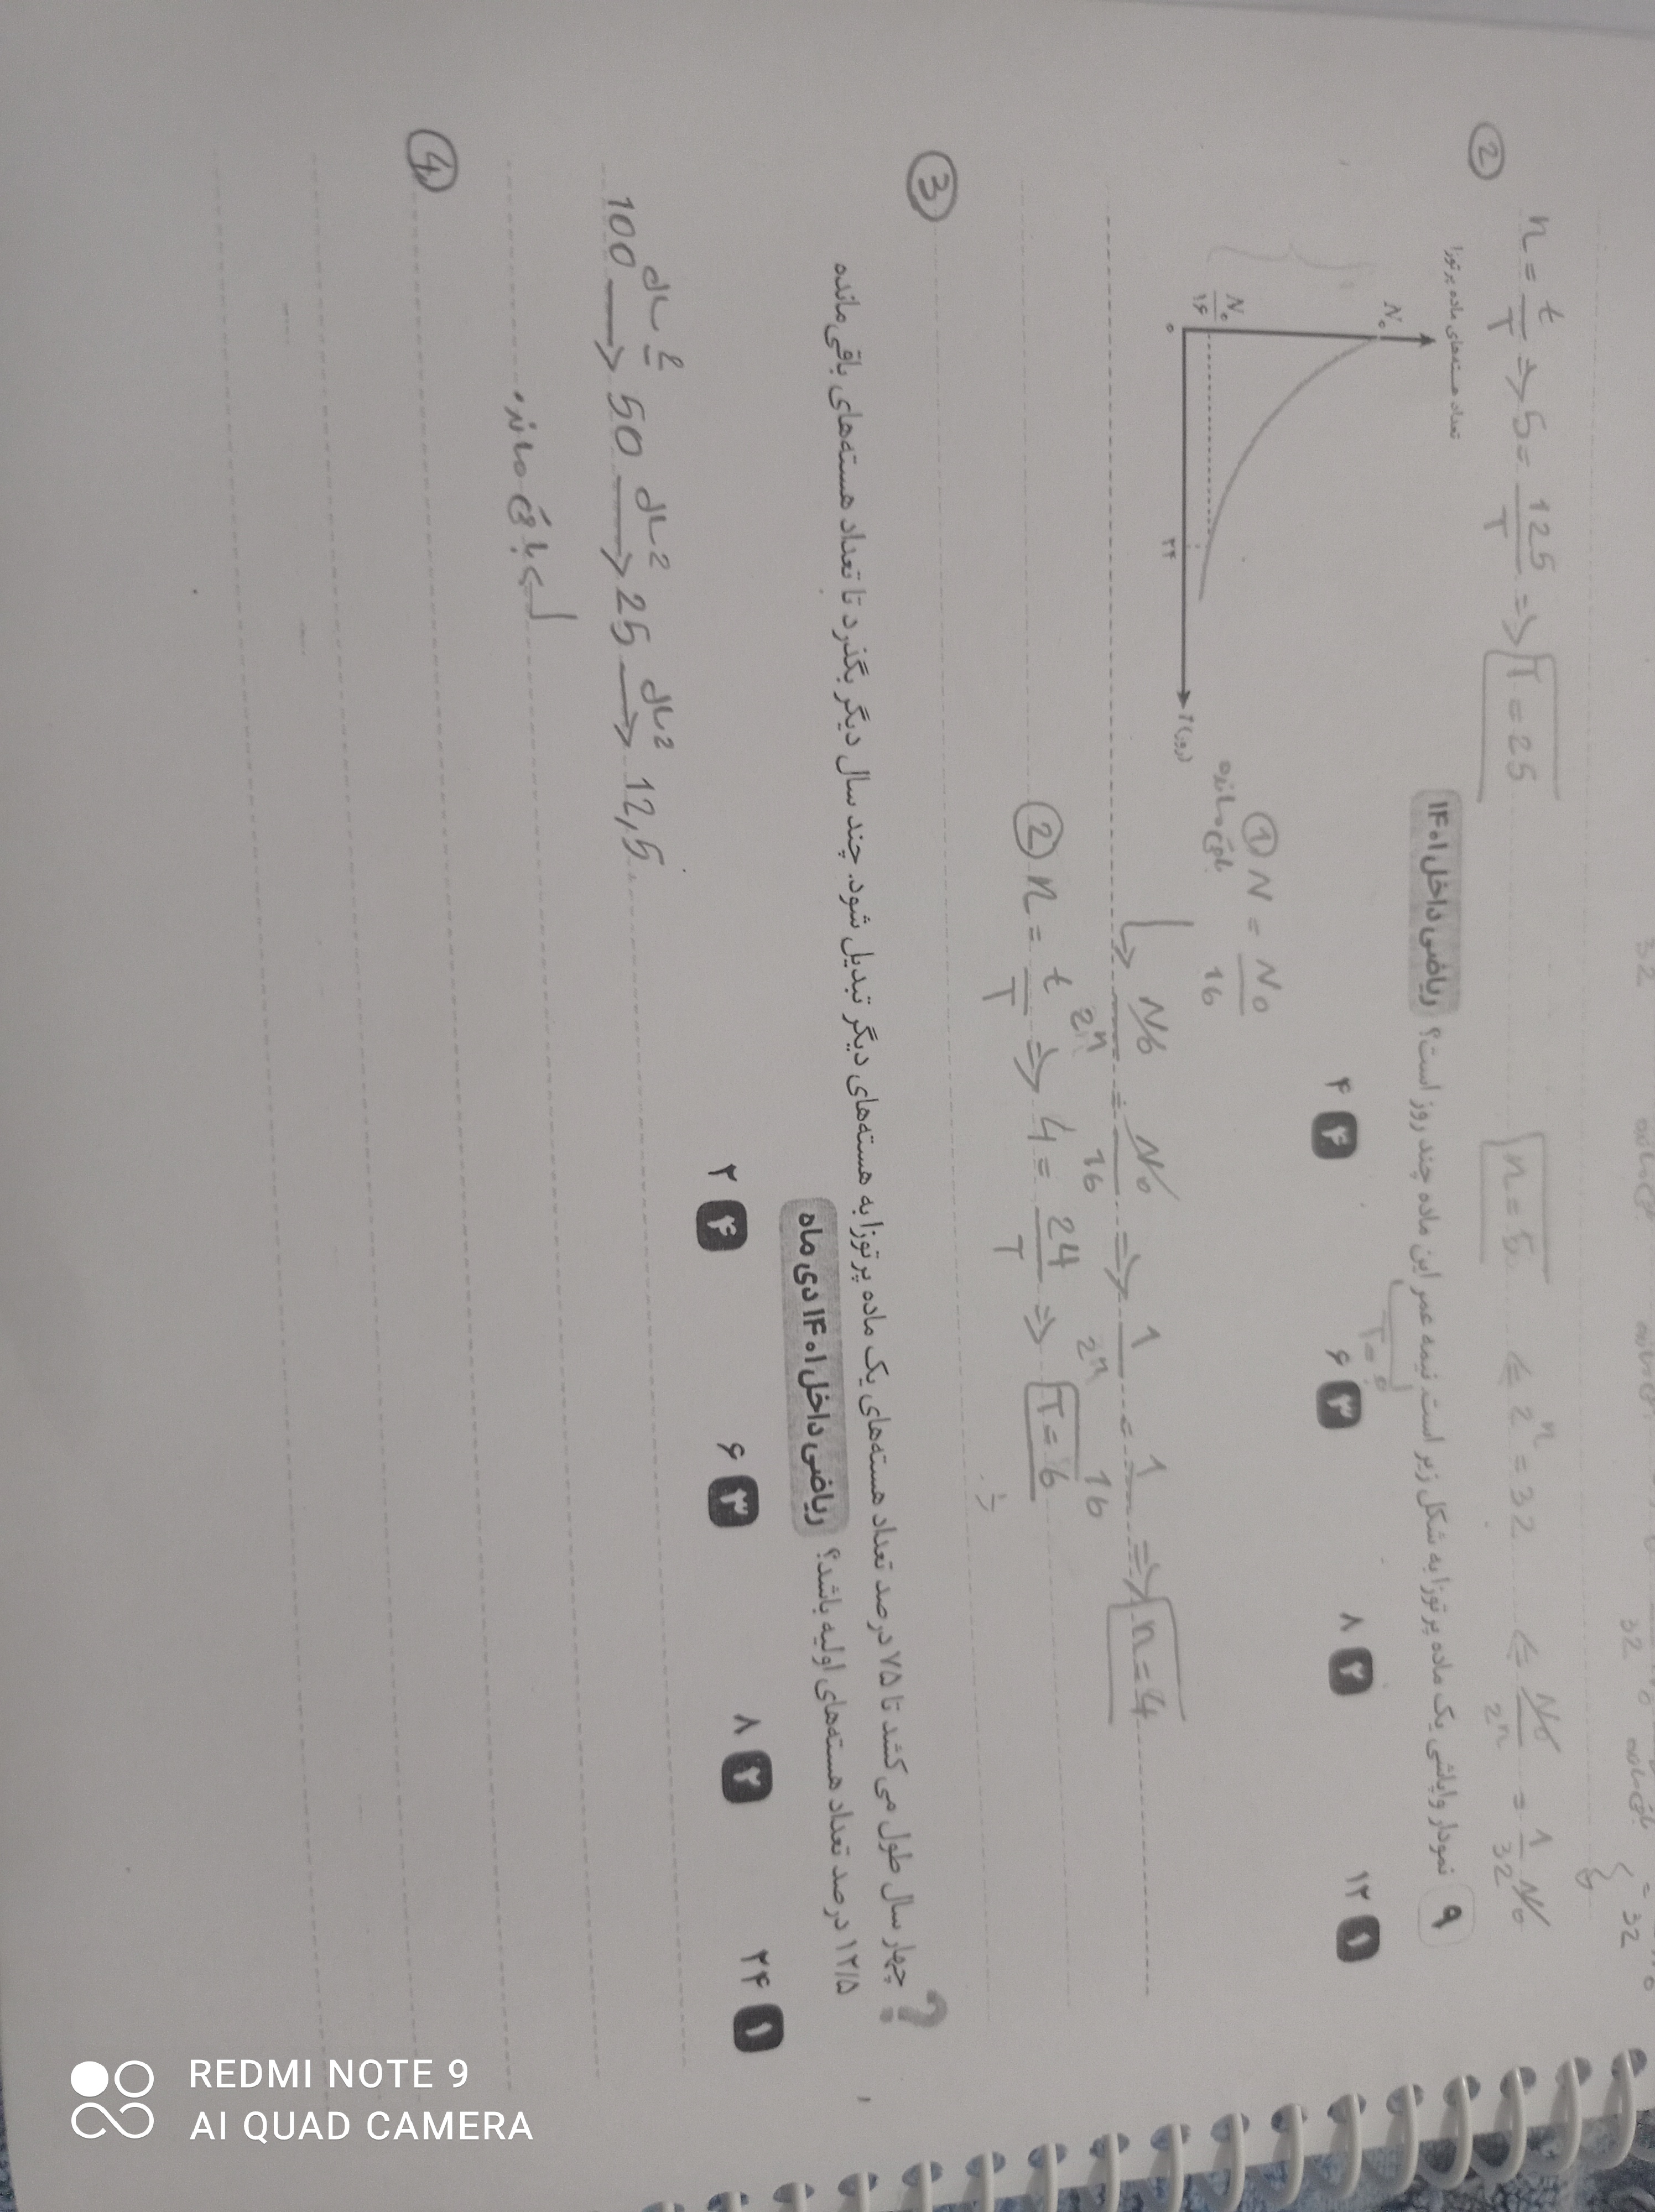 ② n = t/T ⇒ 5 = 125/T ⇒ T = 25
n = 5 ⇐ 2ⁿ = 32 ⇐ N₀/2ⁿ = 1/32 N₀
۹ نمودار واپاشی یک ماده پرتوزا به شکل زیر است. نیمه عمر این ماده چند روز است؟ ریاضی داخل ۱۴۰۱
T = ?
۱ ۱۲
۲ ۸
۳ ۶
۴ ۴
تعداد هسته‌های ماده پرتوزا
N₀
N₀/۱۶
۰
۲۴
t (روز)
① N = N₀/16
باقی مانده
↳ N₀/2ⁿ = N₀/16 ⇒ 1/2ⁿ = 1/16 ⇒ n = 4
② n = t/T ⇒ 4 = 24/T ⇒ T = 6
③
? چهار سال طول می‌کشد تا ۷۵ درصد تعداد هسته‌های یک ماده پرتوزا به هسته‌های دیگر تبدیل شود. چند سال دیگر بگذرد تا تعداد هسته‌های باقی‌مانده
۱۲/۵ درصد تعداد هسته‌های اولیه باشد؟ ریاضی داخل ۱۴۰۱ دی ماه
۱ ۲۴
۲ ۸
۳ ۶
۴ ۲
2 سال 2 سال 2 سال
100 → 50 → 25 → 12,5
باقی مانده
④
REDMI NOTE 9
AI QUAD CAMERA